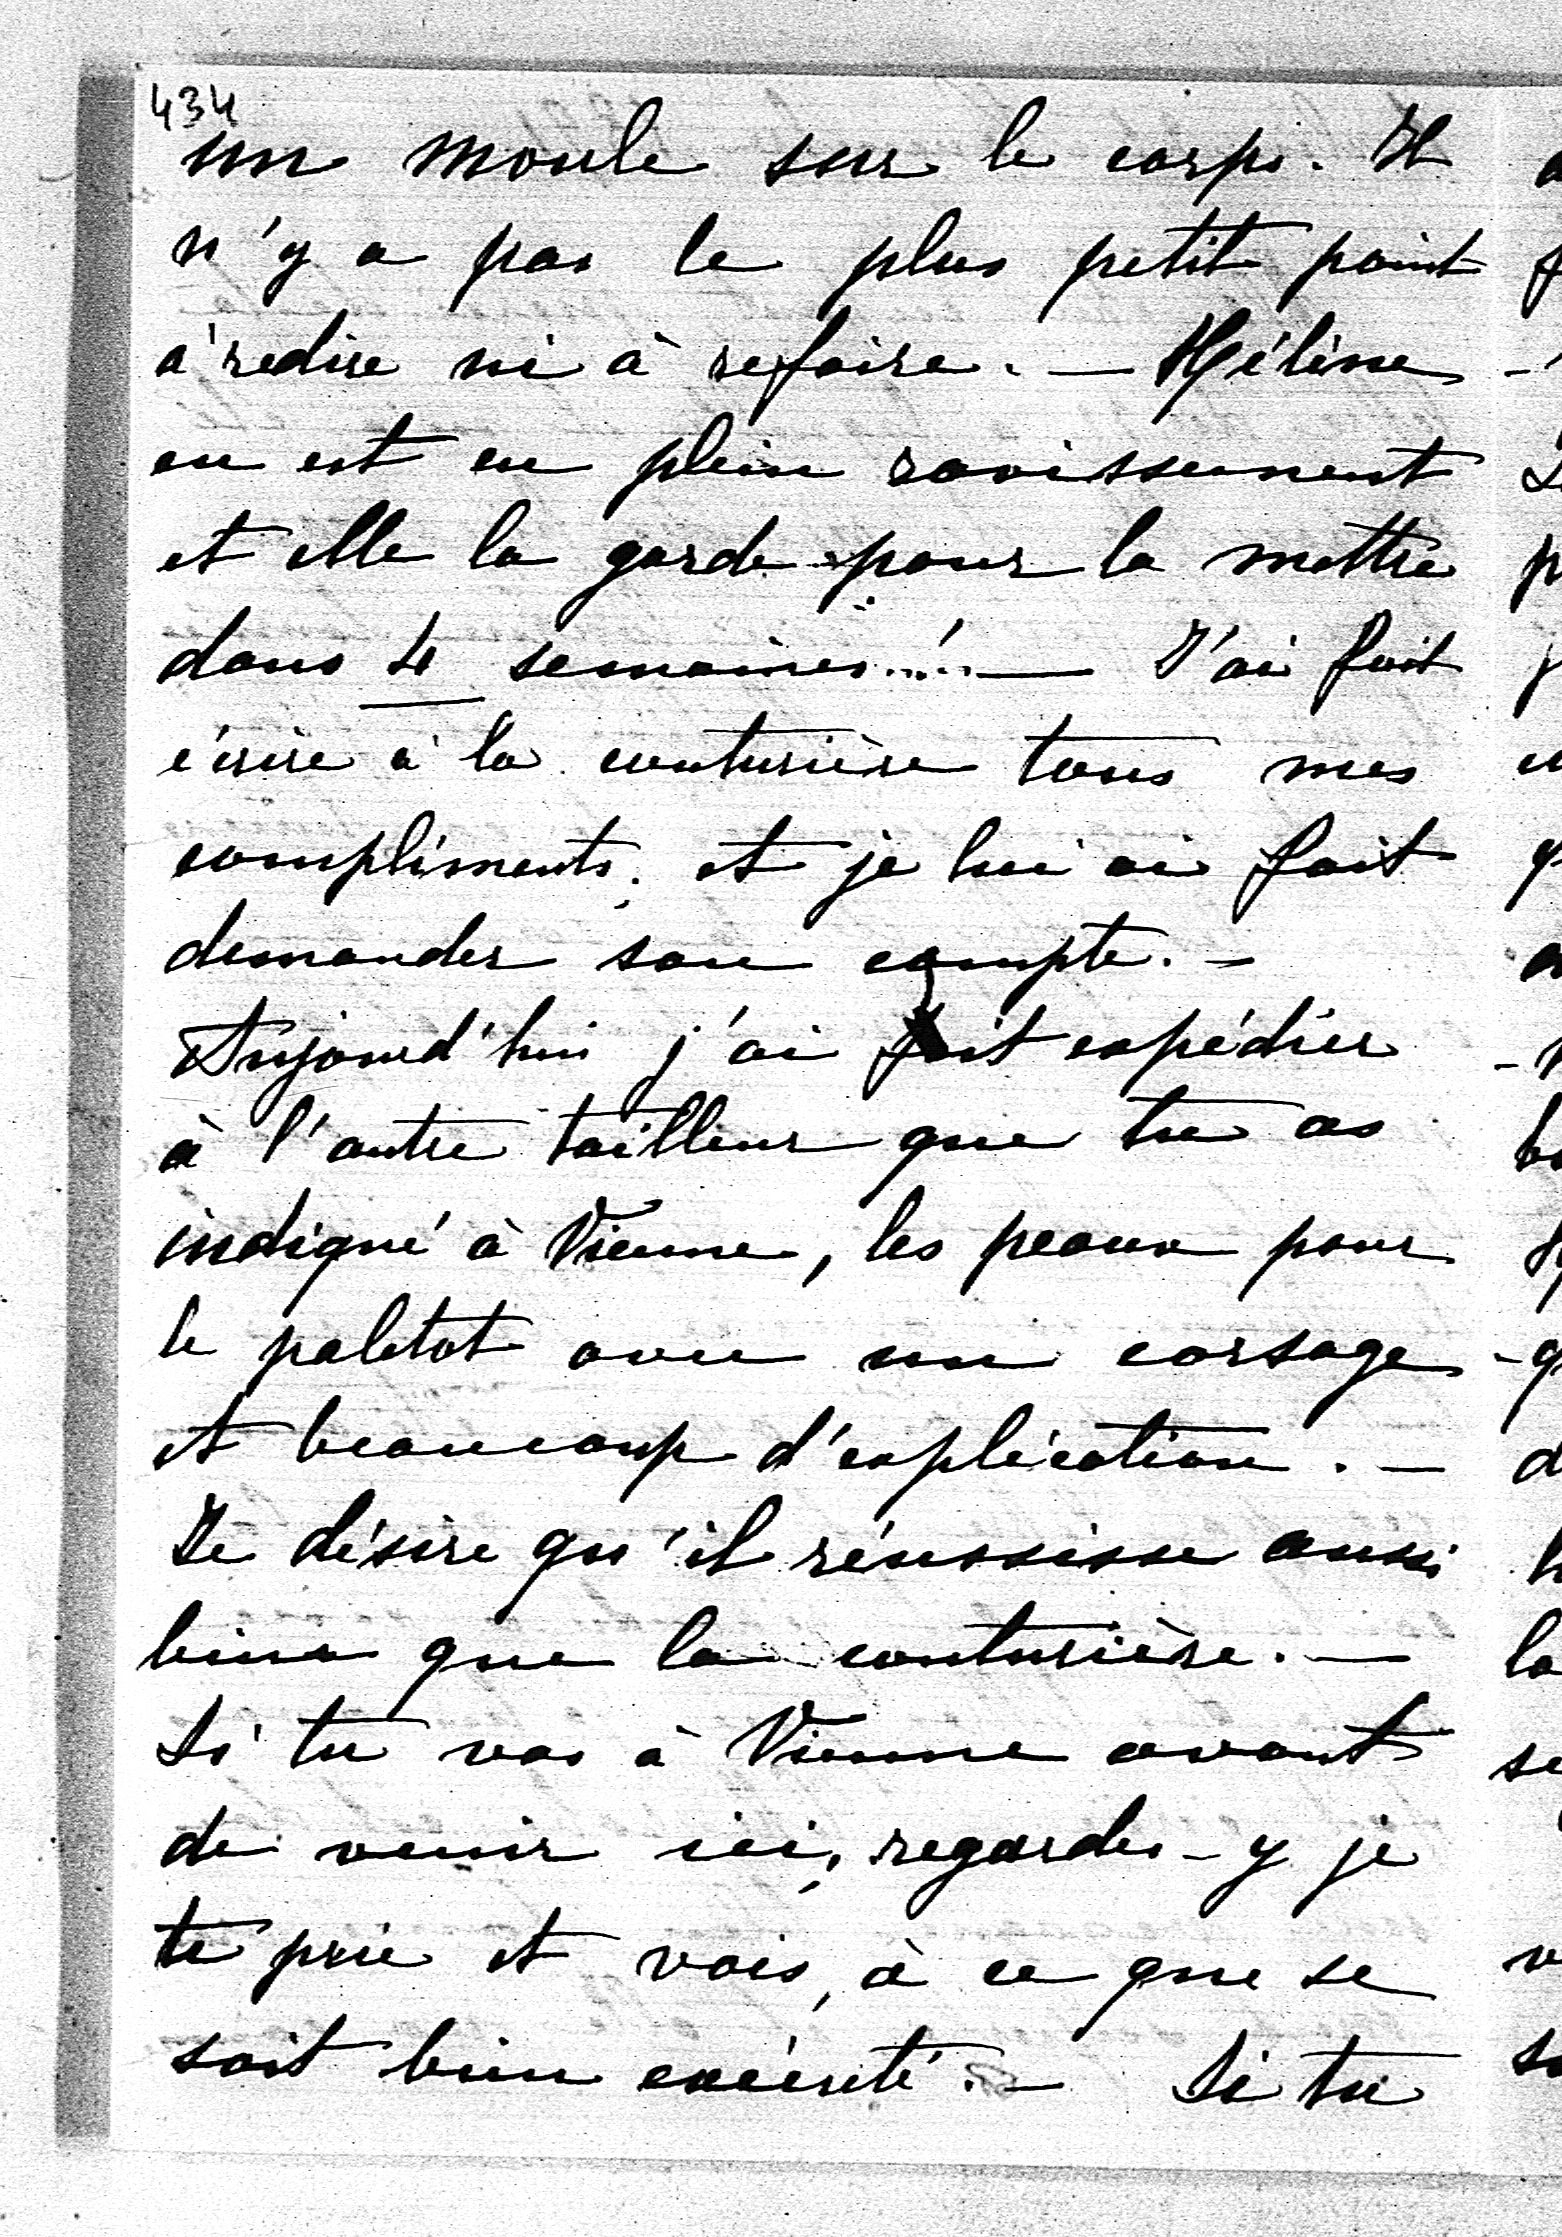 434
un moule sur le corps. Il
n'y a pas le plus petit point
à redire ni à refaire. — Hélène
en est en plein ravissement
et elle la garde pour la mettre
dans 4 semaines...!.. — J'ai fait
écrire à la couturière tous mes
compliments, et je lui ai fait
demander son compte. —
Aujourd'hui j'ai fait expédier
à l'autre tailleur que tu as
indiqué à Vienne, les peaux pour
le paletot avec un corsage
et beaucoup d'explication. —
Je désire qu'il réussisse aussi
bien que la couturière. —
Si tu vas à Vienne avant
de venir ici, regardes-y je
te prie et vois, à ce que se
soit bien exécuté. — Si tu